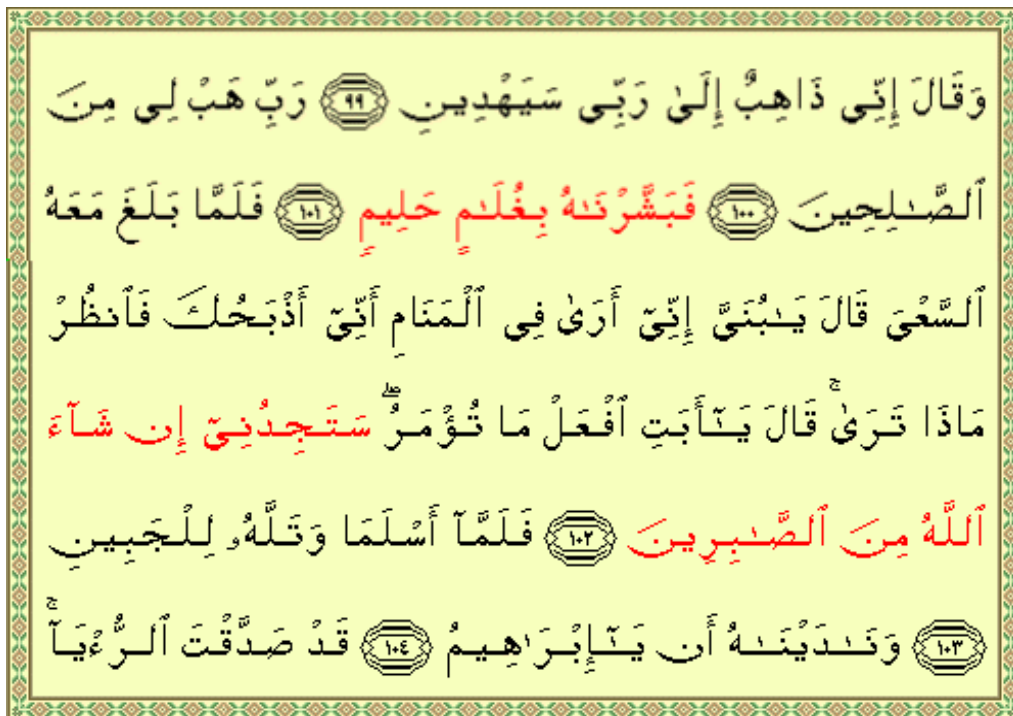 وَقَالَ إِنِّى ذَاهِبٌ إِلَىٰ رَبِّى سَيَهْدِينِ ﴿٩٩﴾ رَبِّ هَبْ لِى مِنَ
ٱلصَّـٰلِحِينَ ﴿١٠٠﴾ فَبَشَّرْنَـٰهُ بِغُلَـٰمٍ حَلِيمٍ ﴿١٠١﴾ فَلَمَّا بَلَغَ مَعَهُ
ٱلسَّعْىَ قَالَ يَـٰبُنَىَّ إِنِّىٓ أَرَىٰ فِى ٱلْمَنَامِ أَنِّىٓ أَذْبَحُكَ فَٱنظُرْ
مَاذَا تَرَىٰ ۚ قَالَ يَـٰٓأَبَتِ ٱفْعَلْ مَا تُؤْمَرُ ۖ سَتَجِدُنِىٓ إِن شَآءَ
ٱللَّهُ مِنَ ٱلصَّـٰبِرِينَ ﴿١٠٢﴾ فَلَمَّآ أَسْلَمَا وَتَلَّهُۥ لِلْجَبِينِ
﴿١٠٣﴾ وَنَـٰدَيْنَـٰهُ أَن يَـٰٓإِبْرَٰهِيمُ ﴿١٠٤﴾ قَدْ صَدَّقْتَ ٱلرُّءْيَآ ۚ